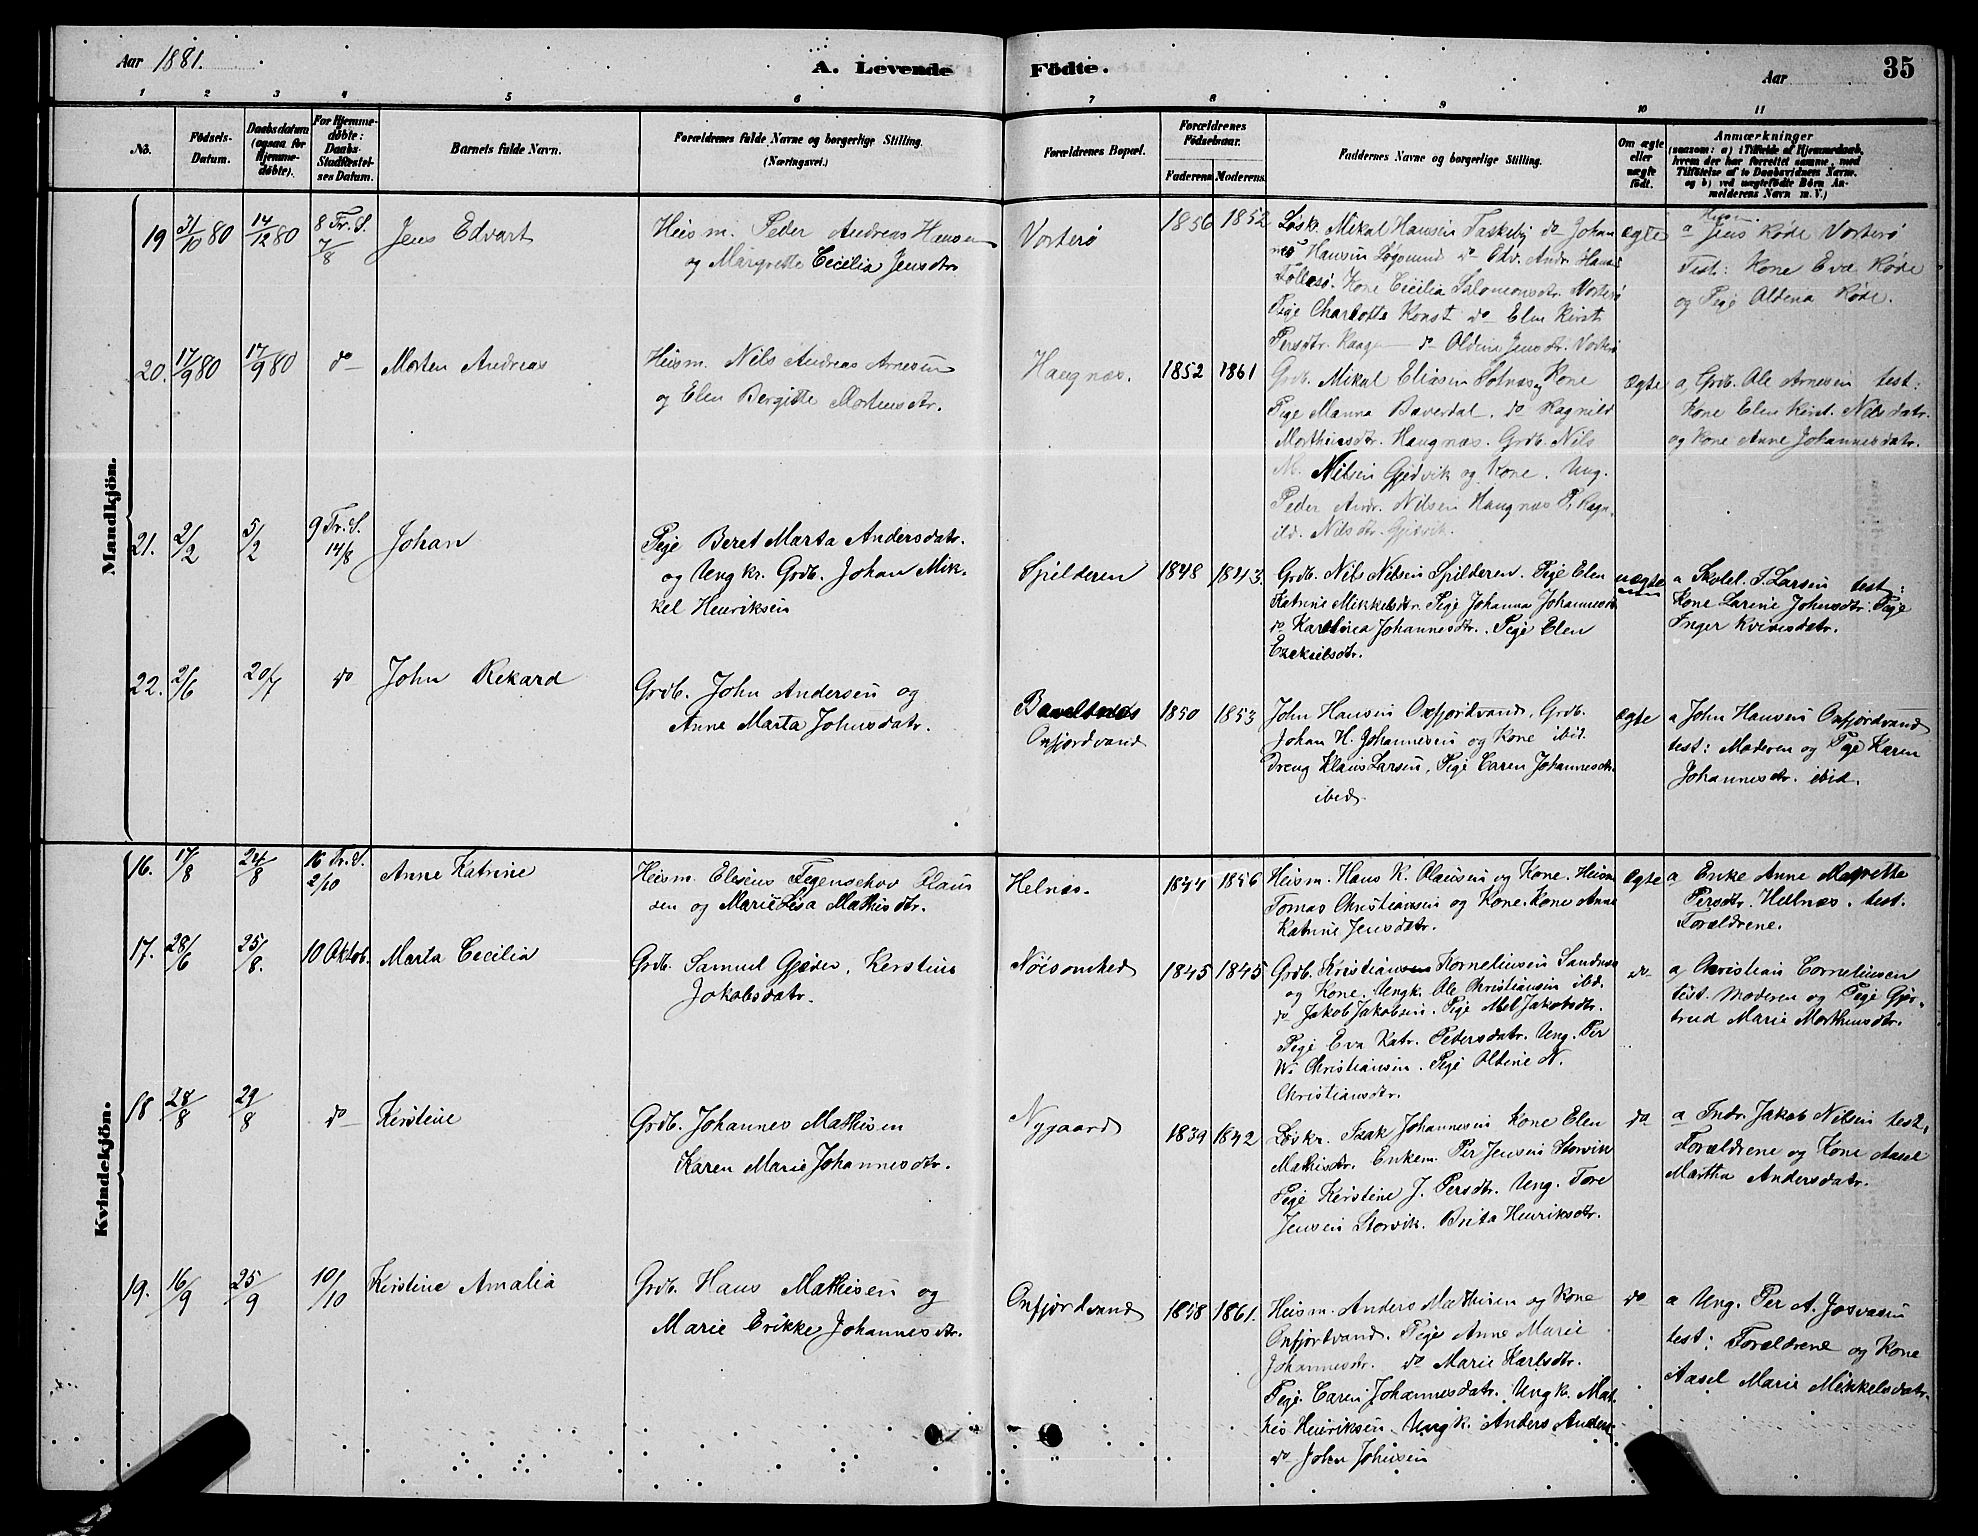 Aar 1881.
A. Levende Födte.
Aar
35
1 2 3 4 5 6 7 8 9 10 11
No.
Födsels-Datum.
Daabsdatum (ogsaa for Hjemme-döbte).
For Hjemme-döbte: Daabs-Stadfæstel-ses Datum.
Barnets fulde Navn.
Forældrenes fulde Navne og borgerlige Stilling.
(Næringsvei.)
Forældrenes Bopæl.
Forældrenes Födselsaar.
Faderens. Moderens.
Faddernes Navne og borgerlige Stilling.
Om ægte eller uægte födt.
Anmærkninger
(saasom: a) i Tilfælde af Hjemmedaab, hvem der har forrettet samme, med Tilföielse af to Daabsvidners Navne, og b) ved uægtefödte Börn An-melderens Navn m. V.)
Mandkjön.
19 31/10 80 14/12 80 8 Tr. S. 7/8
Jens Edvart
Heism. Peder Andreas Hansen
og Margrette Cecilia Jensdtr.
Vorterö
1856 1852
Løsk. Mikal Hansen Taskeby do Johan
nes Hansen Løgsund do Edv. Andr. Hans
Kone Cecilia Salomonsdtr. Vorterö
Pige Charlotte Konst do Elen Kirst.
Persdtr. Kaagen do Oldine Jensdtr. Vorterö
ægte
a Jens Röde Vorterö
Test: Kone Eva Röde
og Pige Aldena Röde.
20. 17/9 80 17/9 80 do
Morten Andreas
Heism. Nils Andreas Arnesen
og Elen Bergitte Mortensdtr.
Haugnæs.
1852 1861
Grdb. Mikal Eliasen Sotnæs og Kone
Pige Manna Baverdal. do Ragnild
Morthensdtr. Haugnæs. Grdb. Nils
M. Nilsen Gjøvik og Kone. Ung.
Peder Andr. Nilsen Haugnæs P. Ragn-
ild. Nilsdtr. Gjøvik.
ægte
a, Grdb. Ole Arnesen test:
Kone Elen Kirst. Nilsdatr.
og Kone Anne Johannesdatr.
21. 2/2 5/2 9 Tr. S. 14/8
Johan
Pige Beret Marta Andersdatr.
og Ungkr. Grdb. Johan Mik-
kel Henriksen
Spilderen
1848 1843.
Grdb. Nils Nilsen Spilderen. Pige Elen
Katrine Mikkelsdtr. Pige Johanna Johannesdtr
do Karolina Johannesdtr. Pige Elen
Ezekielsdtr.
uægte
a Skolel. P. Larsen test:
Kone Larine Johnsdtr. Pige
Inger Kvivesdatr.
22. 2/6 20/7 do
John Rikard
Grdb. John Andersen og
Anne Marta Johnsdatr.
Oxfjordvand
1850 1853
John Hansen Oxfjordvand, Grdb.
Johan H. Johannesen og Kone ibid.
Dreng Klaus Larsen, Pige Caren Johannesdtr.
ibid.
ægte
a John Hansen Oxfjordvand
test: Moderen og Pige Karen
Johannesdtr. ibid.
Kvindekjön.
16. 17/8 24/8 16 Tr. S. 2/10
Anne Katrine
Heism. Elesius Fegenschov Olaus
sen og Marie Lisa Mathisdtr.
Helnæs.
1844 1856
Heism. Hans K. Olausen og Kone. Heism
Tomas Christiansen og Kone. Kone Anne
Katrine Jensdatr.
ægte
a Enke Anne Magrette
Persdtr. Helnæs. test.
Forældrene.
17. 28/6 25/8. 10 Oktob.
Marta Cecilia
Grdb. Samuel Gjæver, Kerstine
Jakobsdatr.
1845 1845
Grdb. Kristian Korneliusen Sandnes
og Kone. Ungk. Ole Christiansen ibd.
do Jakob Jakobsen. Pige Mel Jakobsdtr.
Pige Eva Katr. Petersdatr. Ung. Per
W. Christiansen. Pige Oldine N.
Christiansdtr.
do
a, Christian Corneliusen
test. Moderen og Pige Gjær-
trud Marie Morthensdtr.
18 28/8 29/8 do
Kerstine
Grdb. Johannes Mathisen
Karen Marie Johannesdtr.
Nygaard
1839 1842
Løskr. Isak Johannesen Kone Elen
Mathisdtr. Enkem. Per Jensen Storvik
Pige Kerstine J. Persdtr. Ung. Tore
Jensen Storvik. Brita Henriksdtr.
do
a Indr. Jakob Nilsen test.
Forældrene og Kone Aasel
Martha Andersdatr.
19. 16/9 25/9 10/10
Kerstine Amalia
Grdb. Hans Mathisen og
Marie Erikke Johannesdtr.
Oxfjordvand
1858 1861.
Heism. Anders Mathisen og Kone
Oxfjordvand. Pige Anne Marie
Johannesdtr. do Marie Karlsdtr.
Pige Caren Johannesdatr. Ungk. Mat-
his Henriksen. Ungk. Anders Anders
do John Johnsen
do
a Ung. Per A. Josvasen
test: Forældrene og Kone
Aasel Marie Mikkelsdatr.